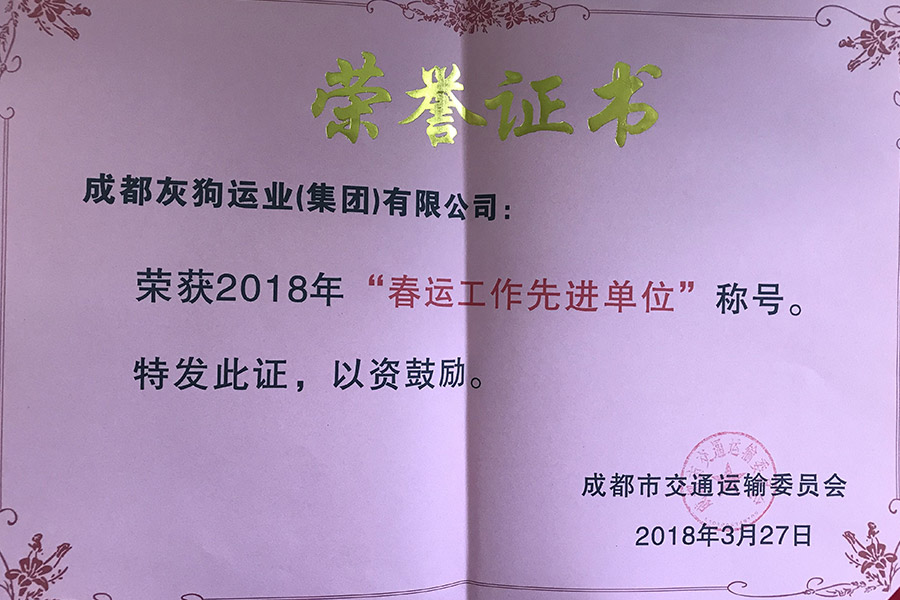 荣誉证书
成都灰狗运业(集团)有限公司:
荣获2018年“春运工作先进单位”称号。
特发此证，以资鼓励。
成都市交通运输委员会
2018年3月27日